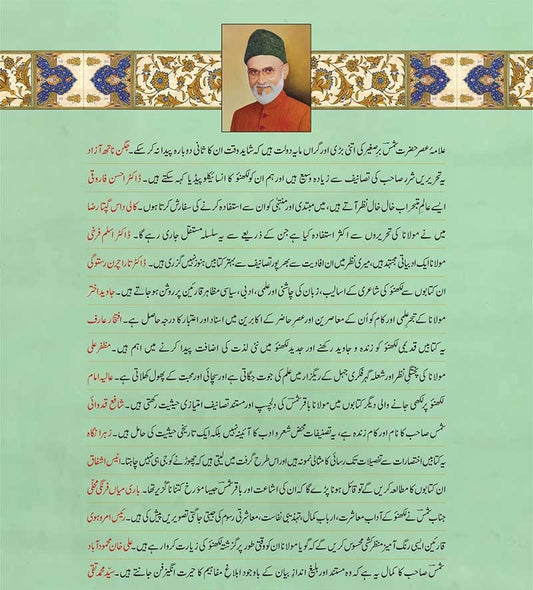 علامۂ عصر حضرت شمسؔ برصغیر کی اتنی بڑی اور گراں مایہ دولت ہیں کہ شاید وقت ان کا ثانی دوبارہ پیدا نہ کر سکے۔ جگن ناتھ آزاد
یہ تحریریں شرر صاحب کی تصانیف سے زیادہ وسیع ہیں اور ہم ان کو لکھنؤ کا انسائیکلو پیڈیا کہہ سکتے ہیں۔ ڈاکٹر احسن فاروقی
ایسے عالمِ متبحر اب خال خال نظر آتے ہیں، میں مبتدی اور منتہی کو ان سے استفادہ کرنے کی سفارش کرتا ہوں۔ کالی داس گپتا رضا
میں نے مولانا کی تحریروں سے اکثر استفادہ کیا ہے جن کے ذریعے سے یہ سلسلہ مستقل جاری رہے گا۔ ڈاکٹر اسلم فرخی
مولانا ایک ادبیاتی مجتہد ہیں، میری نظر میں ان افادیت سے بھرپور تصانیف سے بہتر کتابیں ہنوز نہیں گزری ہیں۔ ڈاکٹر تارا چرن رستوگی
ان کتابوں سے لکھنؤ کی شاعری کے اسالیب، زبان کی چاشنی اور علمی، ادبی، سیاسی مظاہر قارئین پر روشن ہو جاتے ہیں۔ جاوید اختر
مولانا کے تبحرِ علمی اور کام کو اُن کے معاصرین اور عصرِ حاضر کے اکابرین میں اسناد اور اعتبار کا درجہ حاصل ہے۔ افتخار عارف
یہ کتابیں قدیمی لکھنؤ کو زندہ و جاوید رکھنے اور جدید لکھنؤ میں نئی لذت کی اضافت پیدا کرنے میں اہم ہیں۔ مظفر علی
مولانا کی پختگیٔ نظر اور شعلہ گہر فکری جہل کے ریگزار میں علم کی جوت جگاتی ہے اور سچائی اور محبت کے پھول کھلاتی ہے۔ عالیہ امام
لکھنؤ پر لکھی جانے والی دیگر کتابوں میں مولانا باقر شمسؔ کی دلچسپ اور مستند تصانیف امتیازی حیثیت رکھتی ہیں۔ شافع قدوائی
شمسؔ صاحب کا نام اور کام زندہ ہے، یہ تصنیفات محض شعر و ادب کا آئینہ نہیں بلکہ ایک تاریخی حیثیت کی حامل ہیں۔ زہرا نگاہ
یہ کتابیں اختصارات سے تفصیلات تک رسائی کا مثالی نمونہ ہیں اور اس طرح گرفت میں لیتی ہیں کہ چھوڑنے کو جی ہی نہیں چاہتا۔ انیس اشفاق
ان کتابوں کا مطالعہ کریں گے تو قائل ہونا پڑے گا کہ ان کی اشاعت اور باقر شمسؔ جیسا مؤرخ کتنا ناگزیر تھا۔ باری میاں فرنگی محلی
جناب شمسؔ نے لکھنؤ کے آدابِ معاشرت، اربابِ کمال، تہذیبی نفاست، معاشرتی رسوم کی جیتی جاگتی تصویریں پیش کی ہیں۔ رئیس امروہوی
قارئین ایسی رنگ آمیز منظر کشی محسوس کریں گے کہ گویا مولانا ان کو وقتی طور پر گزشتہ لکھنؤ کی زیارت کروا رہے ہیں۔ علی خان محمود آباد
شمسؔ صاحب کا کمال یہ ہے کہ وہ مستند اور بلیغ اندازِ بیان کے باوجود ابلاغِ مفاہیم کا حیرت انگیز فن جانتے ہیں۔ سیّد محمد تقی